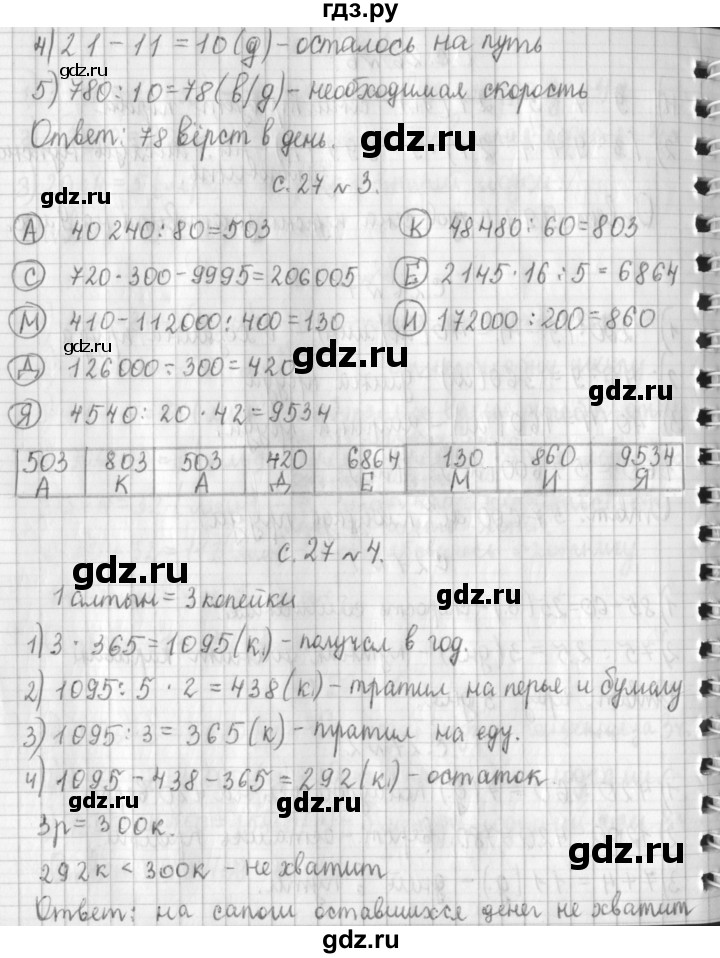 гдз.ру
4) 21 - 11 = 10 (д) - осталось на путь
5) 780 : 10 = 78 (в/д) - необходимая скорость
Ответ: 78 вёрст в день.
gdz.ru
gdz.ru
с. 27 № 3.
А 40 240 : 80 = 503
К 48480 : 60 = 803
gdz.ru
С 720 · 300 - 9995 = 206005
Е 2145 · 16 : 5 = 6864
М 410 - 112000 : 400 = 130
И 172000 : 200 = 860
gdz.ru
gdz.ru
Д 126000 : 300 = 420
Я 4540 : 20 · 42 = 9534
503 803 503 420 6864 130 860 9534
А К А Д Е М И Я
с. 27 № 4.
gdz.ru
gdz.ru
1 алтын = 3 копейки
1) 3 · 365 = 1095 (к.) - получал в год.
2) 1095 : 5 · 2 = 438 (к.) - тратил на перье и бумагу
3) 1095 : 3 = 365 (к) - тратил на еду.
4) 1095 - 438 - 365 = 292 (к.) - остаток.
gdz.ru
3р = 300к.
gdz.ru
292к < 300к - не хватит
Ответ: на сапоги оставшихся денег не хватит
gdz.ru